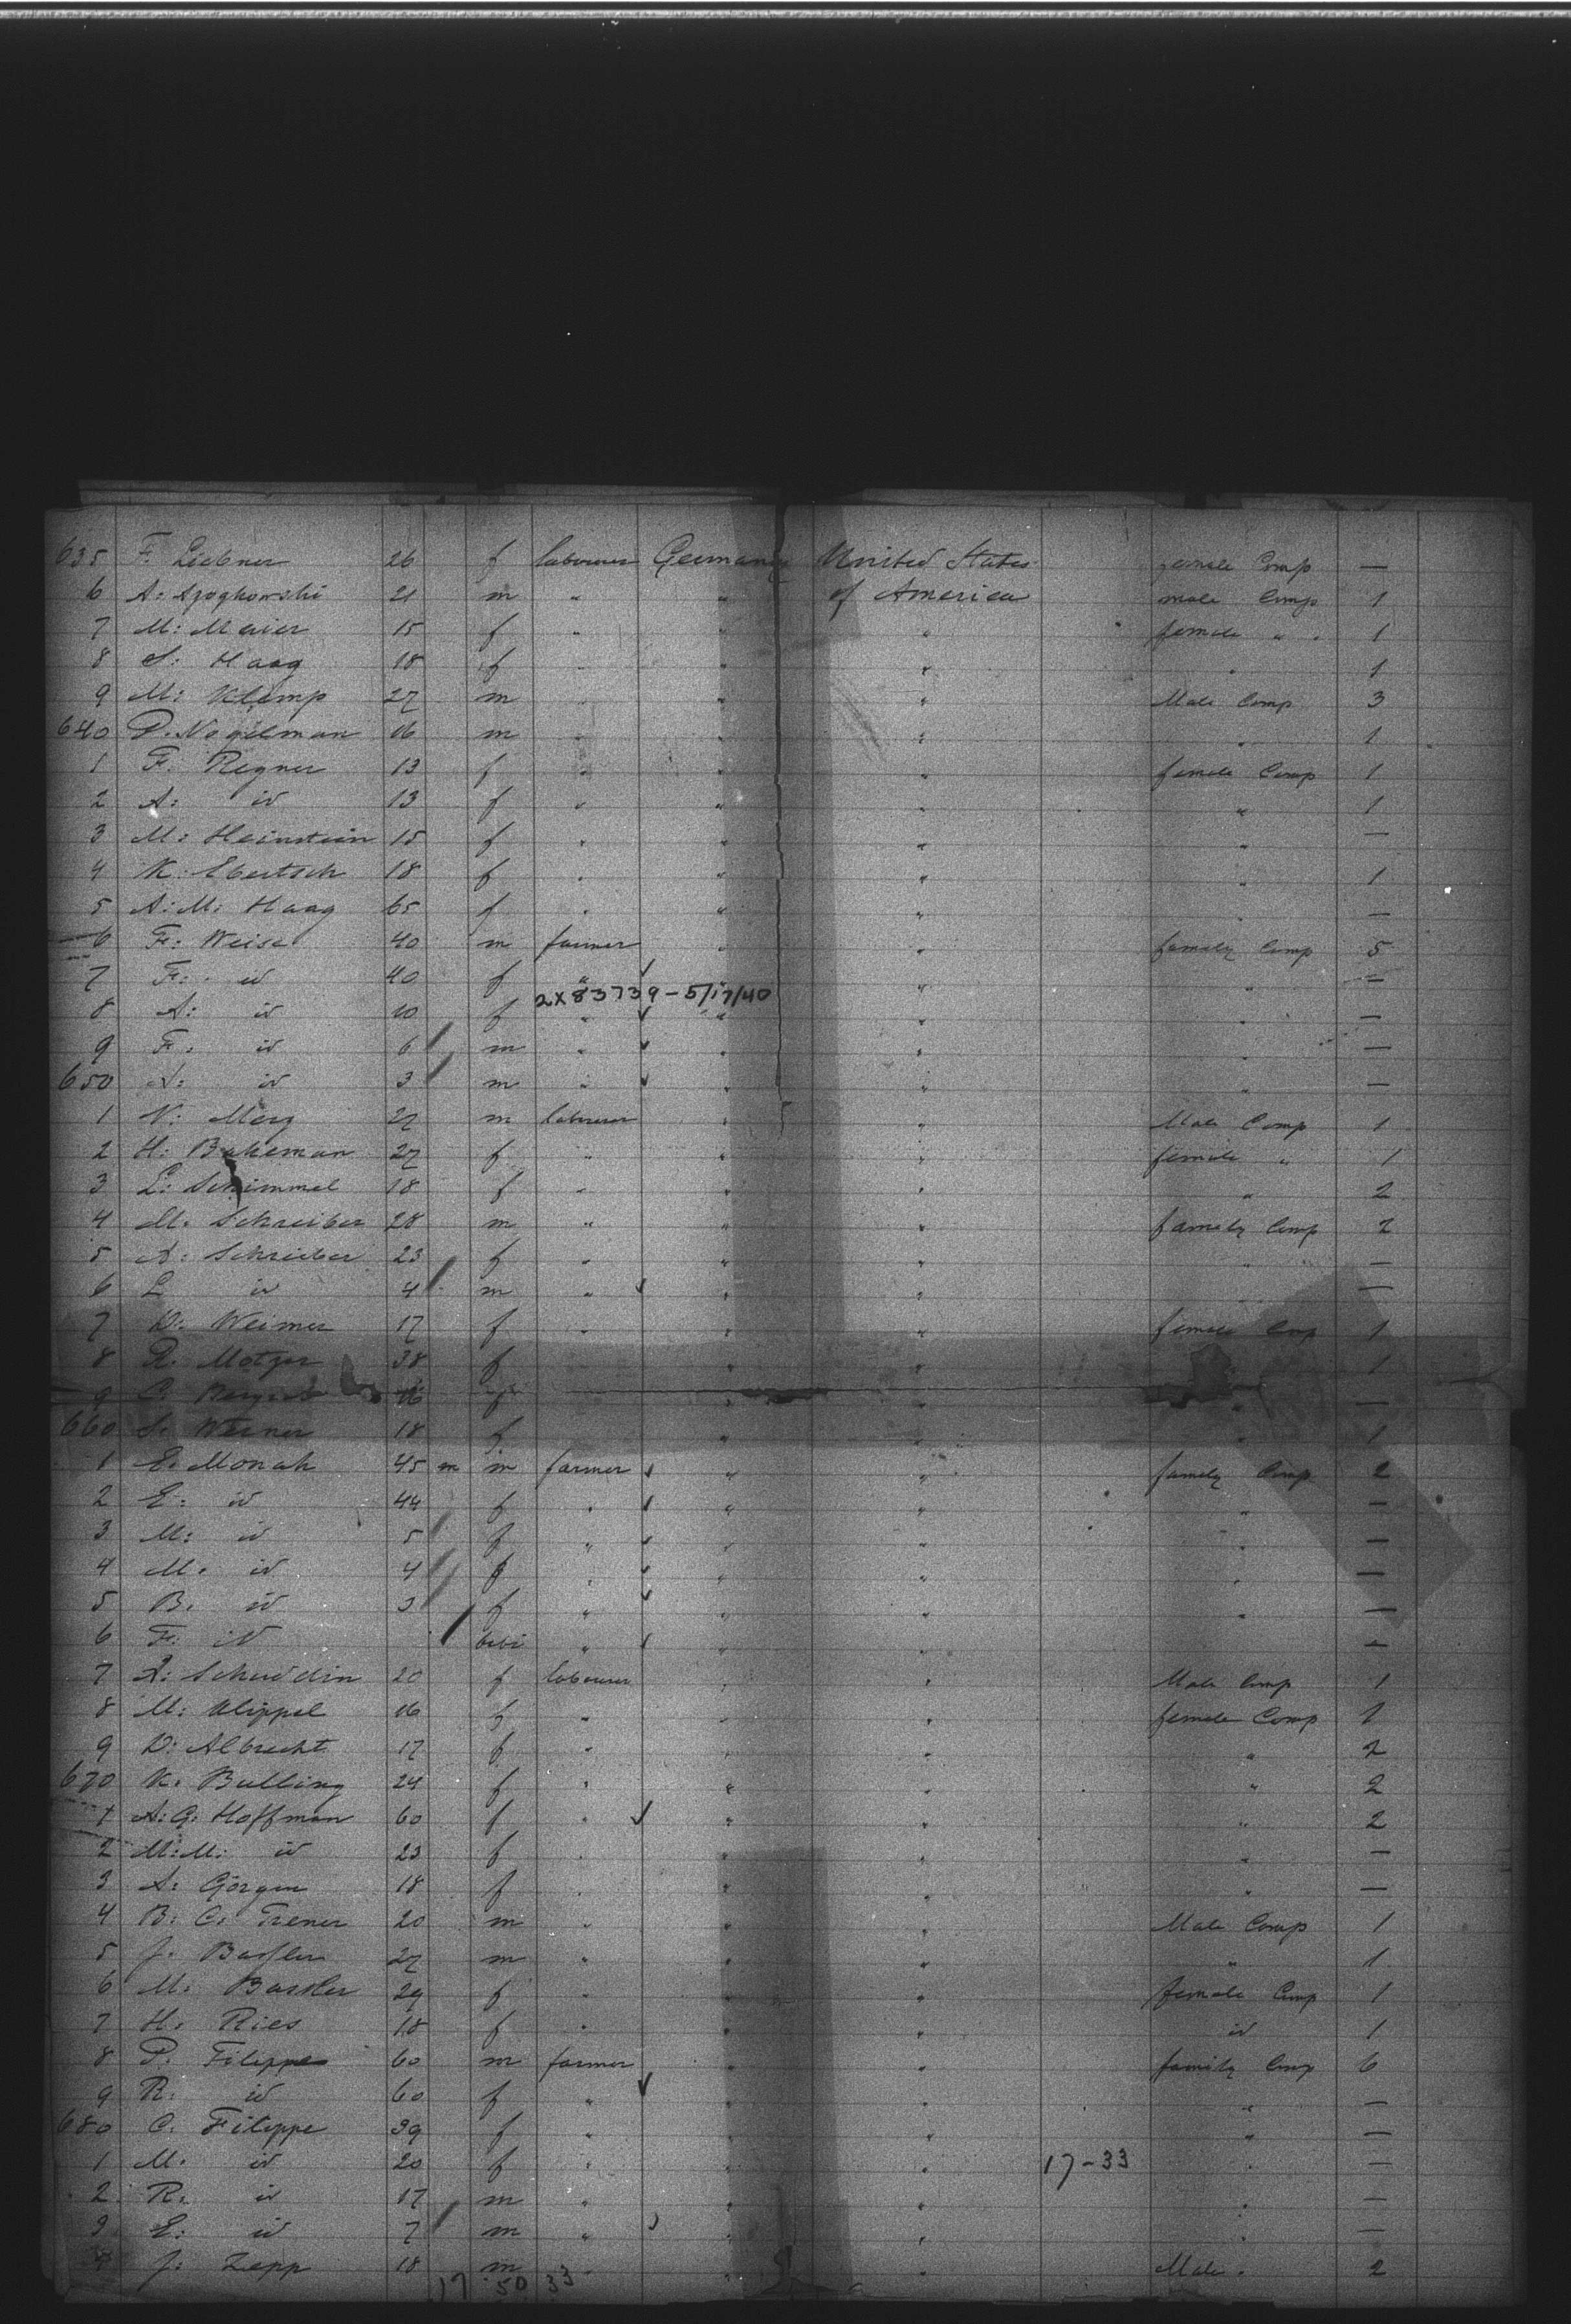 635 F. Liebner 26 f labourer Germany United States female Comp —
6 A: m " " of America male Comp 1
7 M: Meier 15 f " " " female " 1
8 S: Haag 18 f " " " " 1
9 M: Klemp 27 m " " " Male Comp 3
640 P. Nogelman 16 m " " " " 1
1 F. Regner 13 f " " " female Comp 1
2 A: id 13 f " " " " 1
3 M: Heinstein 15 f " " " " —
4 K: Ebertsch 18 f " " " " 1
5 A: M: Haag 65 f " " " " —
6 F: Weise 40 m farmer " " family Comp 5
7 F: id 40 f " " " " —
2x83739 - 5/17/40
8 A: id 10 f " " " " —
9 F. id 6 m " " " " —
650 A: id 3 m " " " " —
1 N: Merz 27 m labourer " " Male Comp 1
2 H: Bakeman 27 f " " " female " 1
3 L: Schimmel 18 f " " " " 2
4 M. Schreiber 28 m " " " family Comp 2
5 A: Schreiber 23 f " " " " —
6 L id 4 m " " " " —
7 D: Weimer 17 f " " " female Comp 1
8 R. Motzer 38 f " " " 1
9 C. 16 f " " " —
660 S. Werner 18 f " " " 1
1 E. Monah 45 m m farmer " " family Comp 2
2 E: id 44 f " " " " —
3 M: id 5 f " " " " —
4 M. id 4 f " " " " —
5 B. id 3 f " " " " —
6 F: id bebi " " " —
7 A: Schuddin 20 f labourer " " Male Comp 1
8 M: Klippel 16 f " " " female Comp 1
9 D: Albrecht 17 f " " " " 2
670 K. Bulling 24 f " " " " 2
1 A: G: Hoffman 60 f " " " " 2
2 M: M: id 23 f " " " " —
3 A: Görgen 18 f " " " " —
4 B: C. Trener 20 m " " " Male Comp 1
5 J. Bassler 27 m " " " " 1
6 M: Bassler 29 f " " " female Comp 1
7 H. Ries 18 f " " " id 1
8 P. Filippe 60 m farmer " " family Comp 6
9 R: id 60 f " " " " —
680 C. Filippe 39 f " " " " —
1 M. id 20 f " " " 17-33 " —
2 R. id 17 m " " " " —
3 E: id 7 m " " " " —
4 J: Zepp 18 m " " " Male " 2
17 50 33